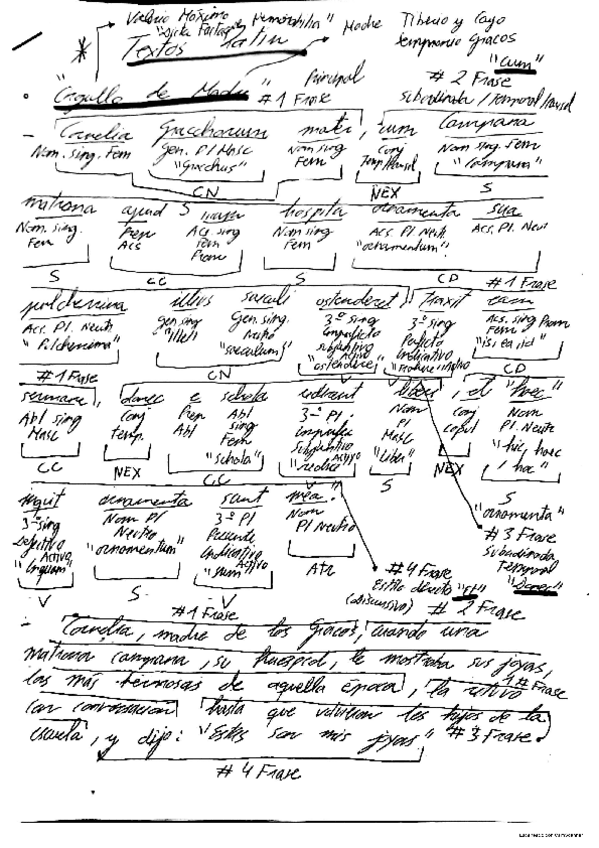 Valerio Máximo
Madre Tiberio y Cayo
Sempronio Gracos
Textos Latín
"Cum"
"Orgullo de Madre" #1 Frase Principal
#2 Frase
Subordinada / Temporal/
- Cornelia Gracchorum mater, cum Campana
Nom. sing. Fem gen. Pl Masc Nom sing Fem Conj Nom sing. Fem
"Gracchus" "Campana"
CN NEX S
matrona apud S hospita ornamenta sua
Nom. sing. Fem Prep Acs Ac. sing Fem Pron Nom sing Fem Ac. Pl. Neut Acs. Pl. Neut
"ornamentum"
S CC S CD #1 Frase
pulcherrima illius saeculi ostenderet, traxit eam
Acc. Pl. Neutr gen sing Gen. sing. Neutro 3ª sing 3ª sing Acs. sing Pron Fem
"Pulcherrima" "Ille" "saeculum" Imperfecto subjuntivo Activo Perfecto Indicativo Activo "is, ea, id"
"ostendere"
#1 Frase CN V V CD
sermone, donec e schola redirent liberi, et "haec"
Abl sing Masc Conj temp. Prep Abl Abl sing Fem 3ª Pl. Nom Pl Masc Conj copul Nom Pl. Neutro
"schola" Imperfec Subjuntivo Activo "liber" "hic, haec, hoc"
CC NEX CC V S NEX S
"ornamenta"
inquit ornamenta sunt mea."
3ª sing Nom Pl Neutro 3ª Pl Nom Pl Neutro
Defectivo Activo "ornamentum" Presente Indicativo Activo
"Inquam" "sum"
V S V Atr
#3 Frase
Subordinada
Temporal
"Donec"
#4 Frase
Estilo directo "Et"
#1 Frase #2 Frase
- Cornelia, madre de los Gracos, cuando una
matrona campana, su huésped, le mostraba sus joyas,
las más hermosas de aquella época, la retuvo 1# Frase
con conversación hasta que volvieron los hijos de la
escuela, y dijo: "Estas son mis joyas" #3 Frase.
#4 Frase